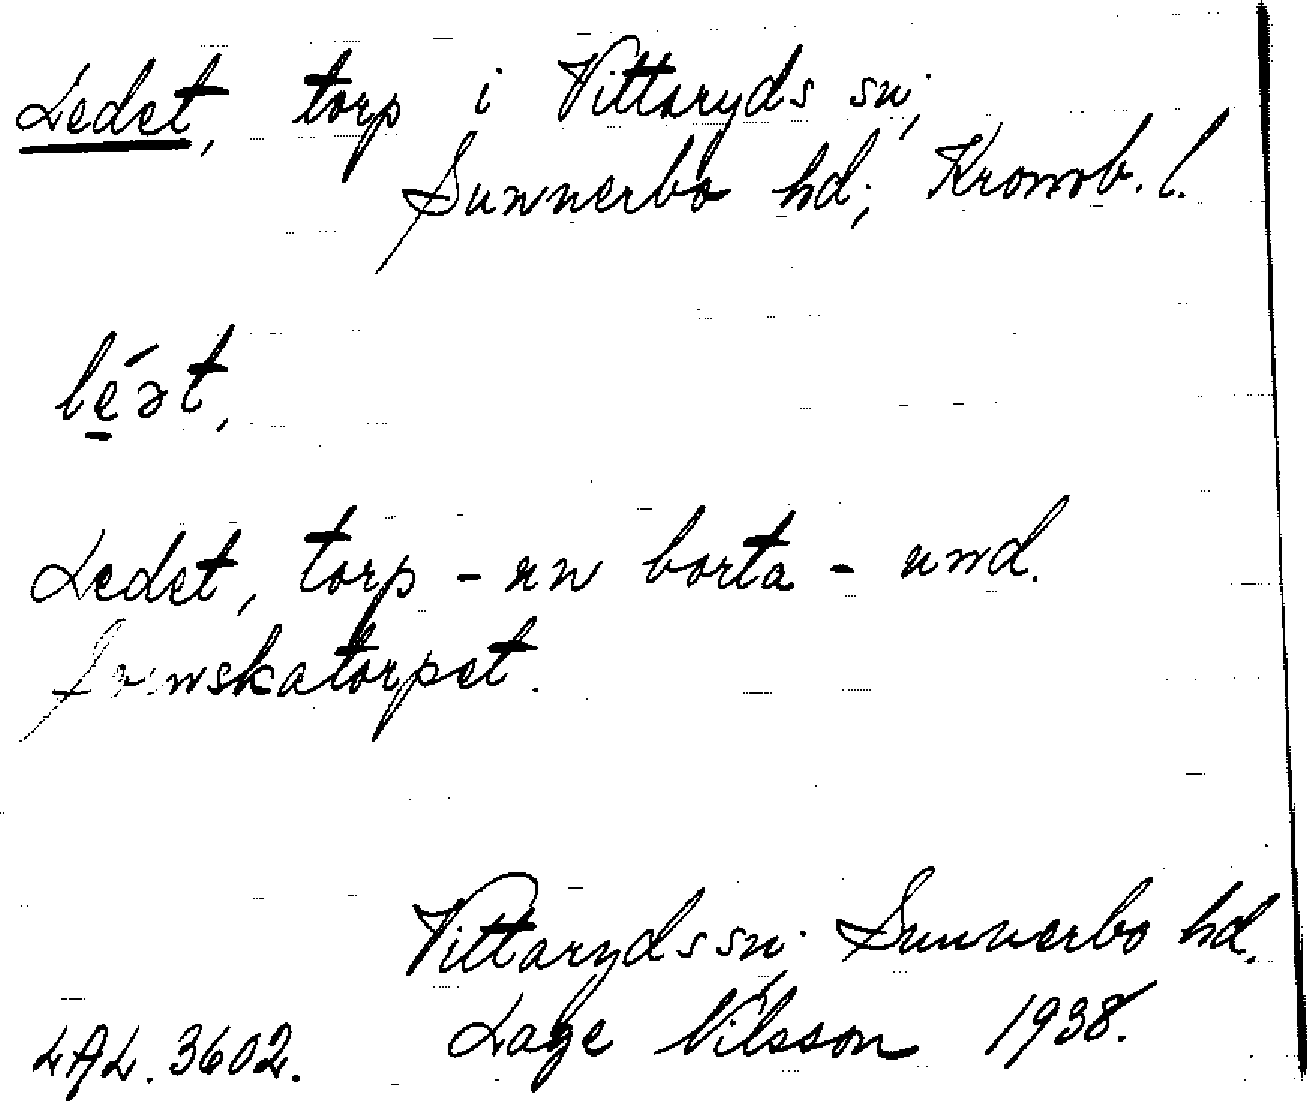 Ledet, torp i Vittaryds sn;
Sunnerbo hd; Kronob. l.
lé̱ət,
Ledet, torp - nu borta - und.
LAL. 3602.
Vittaryds sn; Sunnerbo hd.
Lage Nilsson 1938.